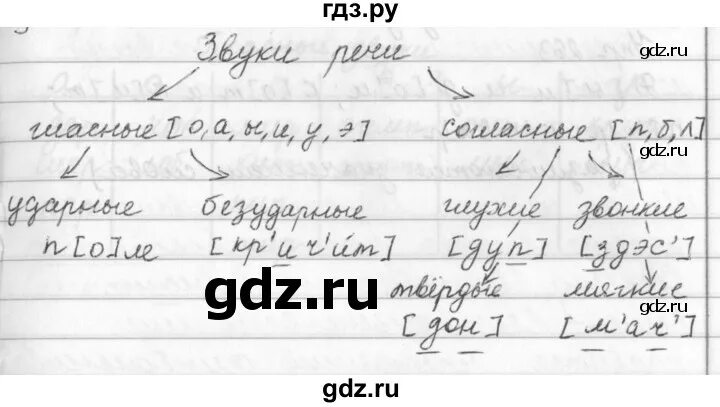 гдз.ру
Звуки речи
gdz.ru
gdz.ru
гласные [о, а, ы, и, у, э] согласные [п, б, л]
gdz.ru
ударные безударные глухие звонкие
п[о]ле [кр'ич'и́т] [дуп] [здэс']
gdz.ru
твёрдые мягкие
[дон] [м'ач']
gdz.ru
gdz.ru